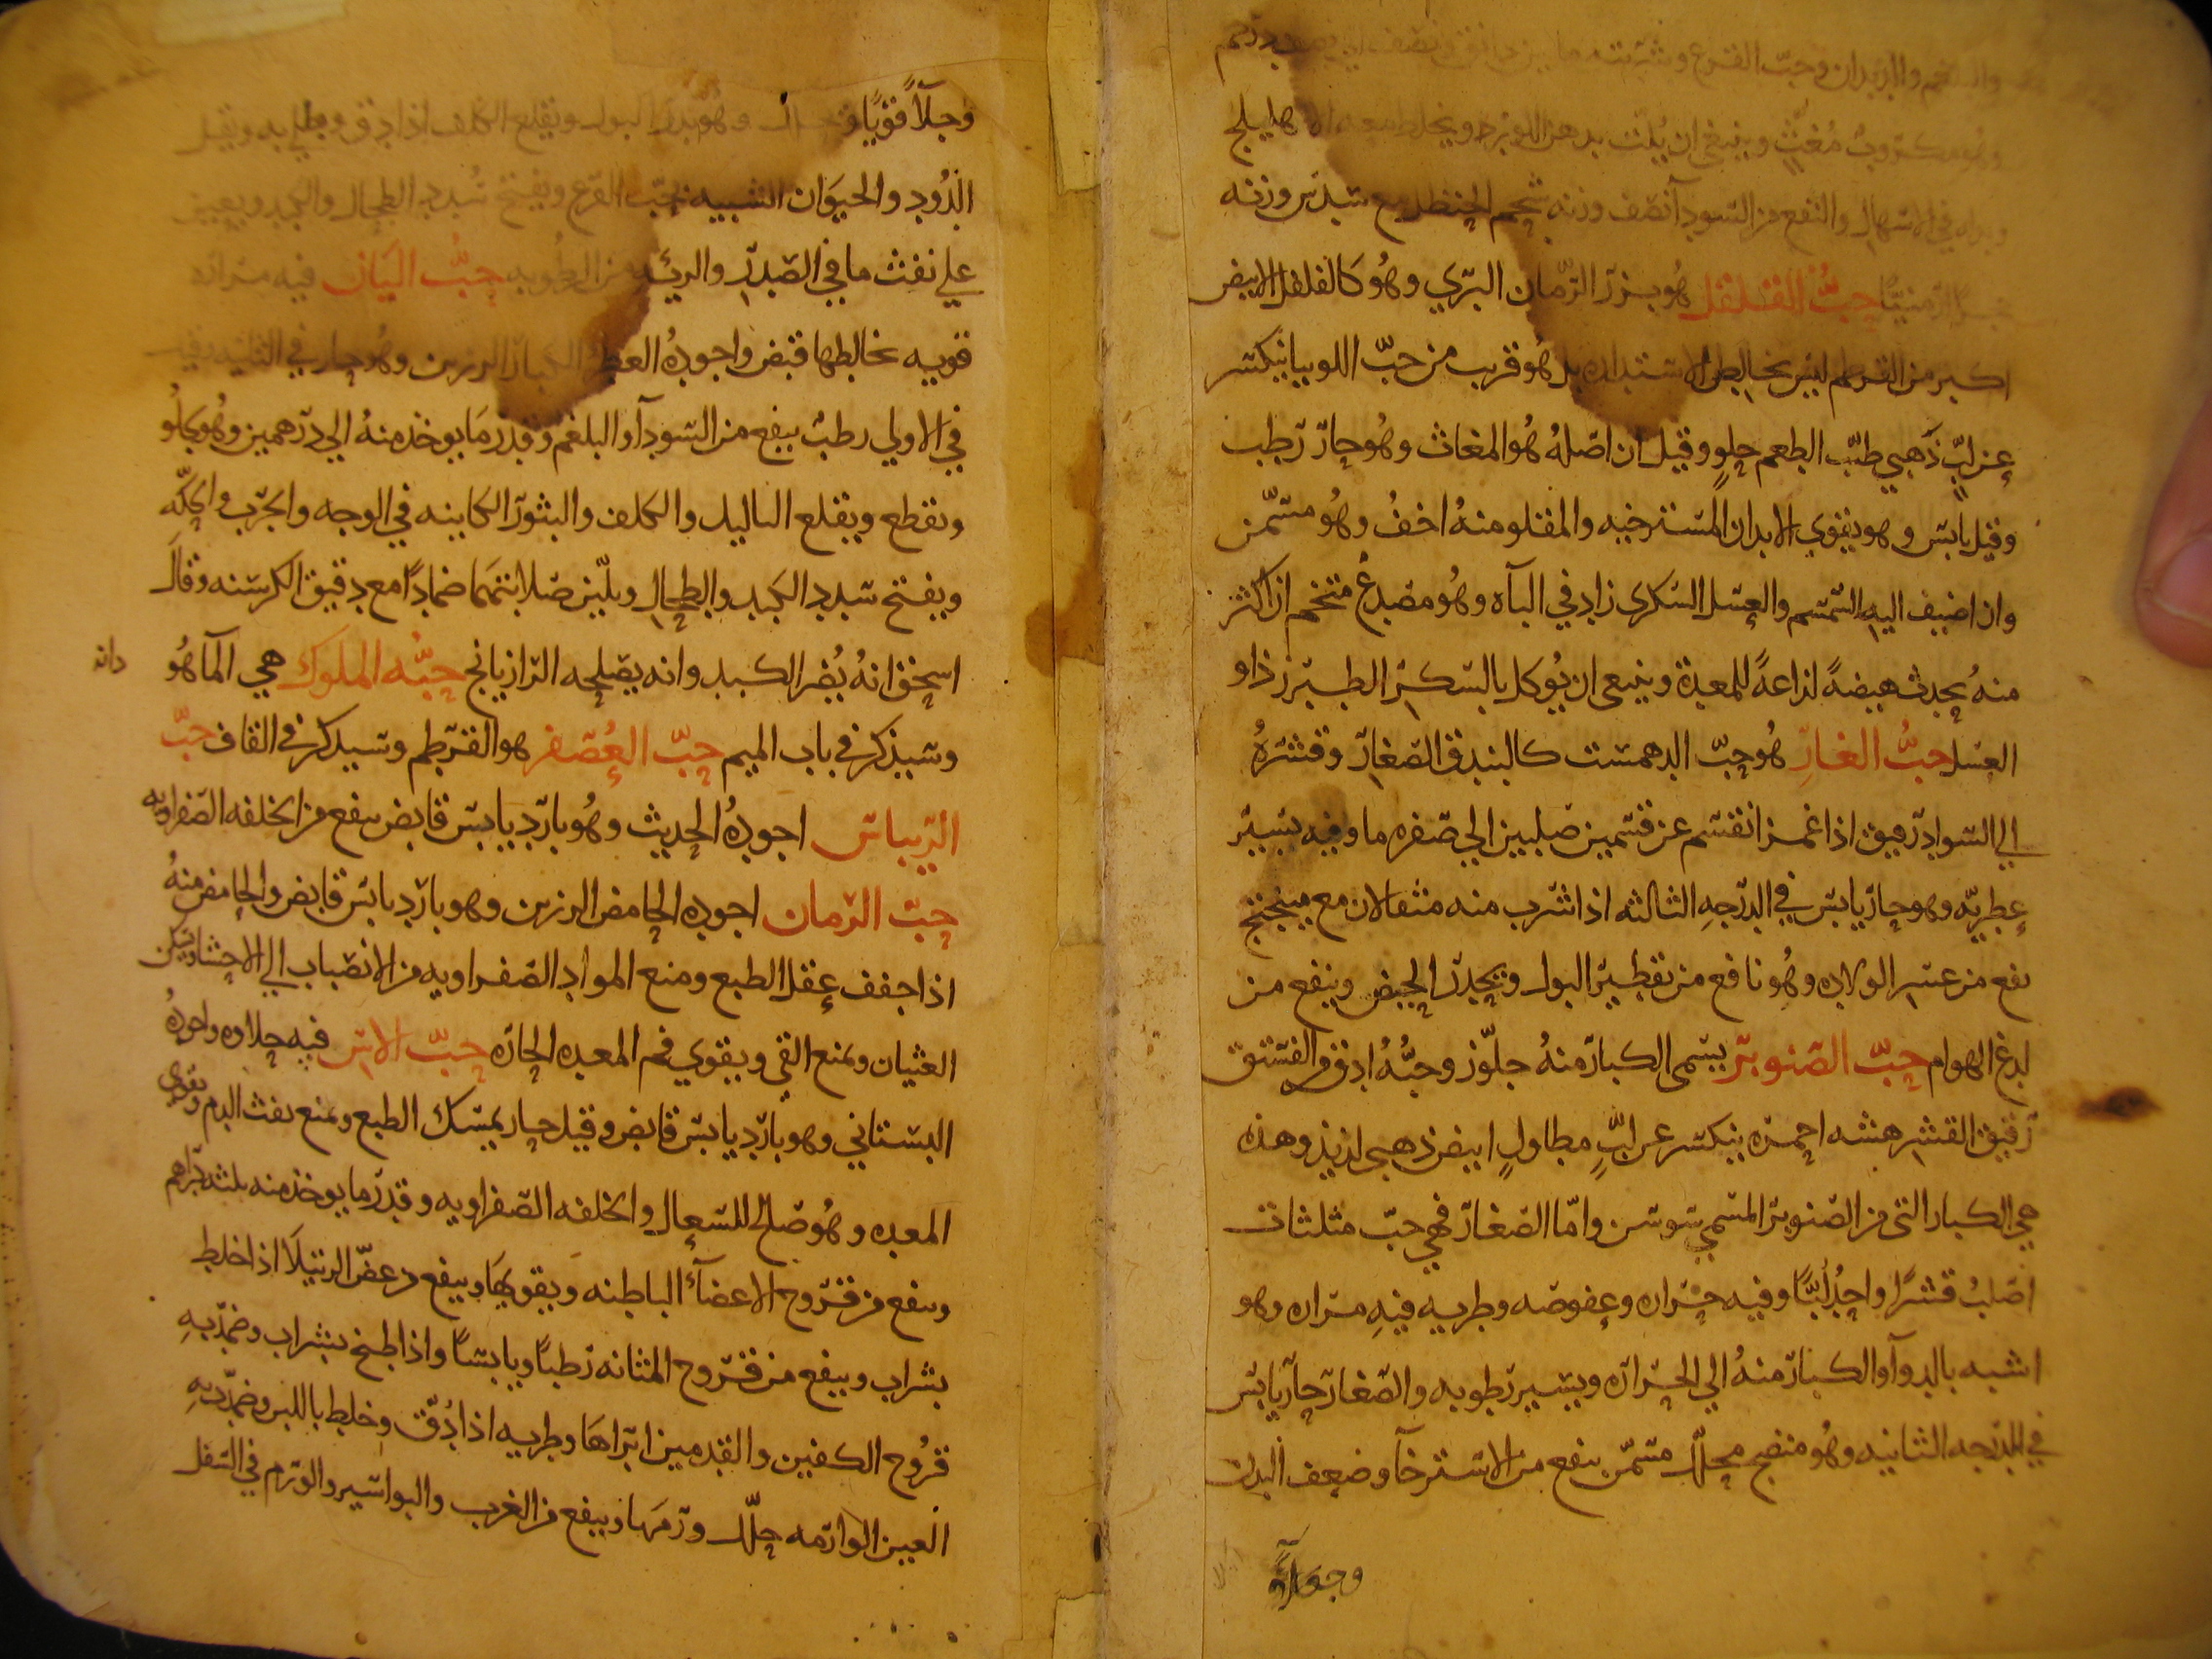 والبلغم والديدان وحب القرع وشربته ما بين دانق ونصف الي نصف درهم
وهو مكرب مغث وينبغي ان يلت بدهن اللوز ويخلط معه الاهليلج
وبدله في الاسهال والنفع من السودآ نصف وزنه شحم الحنظل مع سدس وزنه
حجر ارمنيا حبُّ القلقل هُو بزر الرمان البري وهُو كالفلفل الابيض
اكبر من القرطم ليس بخالص الاستداره بل هُو قريب من حبّ اللوبيا ينكسر
عن لبٍّ ذهبي طيّب الطعم حلوٍ وقيل ان اصلهُ هُو المغاث وهُو حارّ رطب
وقيل يابس وهو يقوي الابدان المسترخيه والمقلو منهُ اخفُ وهُو مسمّن
وان اضيف اليه السّمسم والعسل السّكرى زاد في البآه وهُو مصدعٌ متخم ان اكثر
منهُ يحدث هيضةً لذاعةً للمعدة وينبغى ان يُوكل بالسّكر الطبرزذ او
العسل حبُّ الغارِ هُو حبّ الدهمست كالبندق الصغار وقشرهُ
الي السواد رقيق اذا غمز انقسم عن قسمين صلبين الي صفره ما وفيه يسير
عطريّه وهو حار يابس في الدرجهِ الثالثه اذا شرب منه مثقالان مع ميبختج
نفع من عسر الولاده وهُو نافع من تقطير البول ويحدر الحيض وينفع من
لدغ الهوام حبّ الصنوبر يسمى الكبار منهُ جلّوز وحبُّهُ ادق من الفستق
رقيق القشر هشه احمره ينكسر عن لبٍّ مطاولٍ ابيض ذهبى لذيذ وهذه
هي الكبار التى من الصنوبر المسمي سوسن وامّا الصغار فهي حبّ مثلثات
اصلبُ قشرًا واحدُّ لبًّا وفيه حراره وعفوصه وطريه فيهِ مراره وهو
اشبه بالدوآ والكبار منهُ الي الحراره ويسير رطوبه والصغار حارّ يابس
في الدرجه الثانيه وهُو منضج محلّل مسمّن ينفع من الاسترخآ وضعف البدن
وجلآؤُ
وجلآً قويًا وهو يدر البول ويقلع الكلف اذا دق وطلي به ويقتل
الدُود والحيوان الشبيه بحبّ القرع ويفتح سُدد الطحال والكبد ويعين
علي نفث ما في الصدر والريئه من الرطوبه حبُّ البان فيه مراره
قويه يخالطها قبض واجودهُ العطر الكبار الرزين وهُو حار في الثانيه وقيل
في الاولي رطب ينفع من السودآ والبلغم وقدر مَا يوخذ منهُ الي درهمين وهُو يجلُو
ويقطع ويقلع الثاليل والكلف والبثور الكاينه في الوجه والجرب والحكّه
ويفتح سدد الكبد والطحال ويليّن صلابتهَما ضمادًا مع دقيق الكرسنه وقَال
اسحق انهُ يُضر الكبد وانه يصلحه الرازيانج حبُّه الملوك هي المَاهُو
دانه
وسيذكر في باب الميم حبّ العُصفر هو القرطم وسيذكر في القاف حبّ
الريباس اجودهُ الحديث وهُو بارد يابس قابض ينفع من الخلفه الصفراويه
حبّ الرّمان اجوده الحامض الرزين وهو بارد يابس قابض والحامض منهُ
اذا جفف عقل الطبع ومنع المواد الصفراويه من الانصباب الي الاحشا ويسكن
الغثيان ويمنع القي ويقوي فم المعده الحارّه حبّ الاس فيه حلاوه واجودُهُ
البستاني وهو بارد يابس قابض وقيل حار يمسك الطبع ويمنع نفث الدم ويقوى
المعده وهُو صالح للسعال والخلفه الصفراويه وقدر ما يوخذ منه ثلثه دراهم
وينفع من قروح الاعضآء الباطنه ويقويهَا وينفع من عضّ الرتيلَا اذا خلط
بشراب وينفع من قروح المثانه رطباً ويابساً واذا طبخ بشراب وضمّد بهِ
قرُوح الكفين والقدمين ابراهَا وطريه اذا دُقّ وخلط باللبن وضمّد بهِ
العين الوارمه حلّل ورَمهَا وينفع من الغرب والبواسير والورم في السّفل